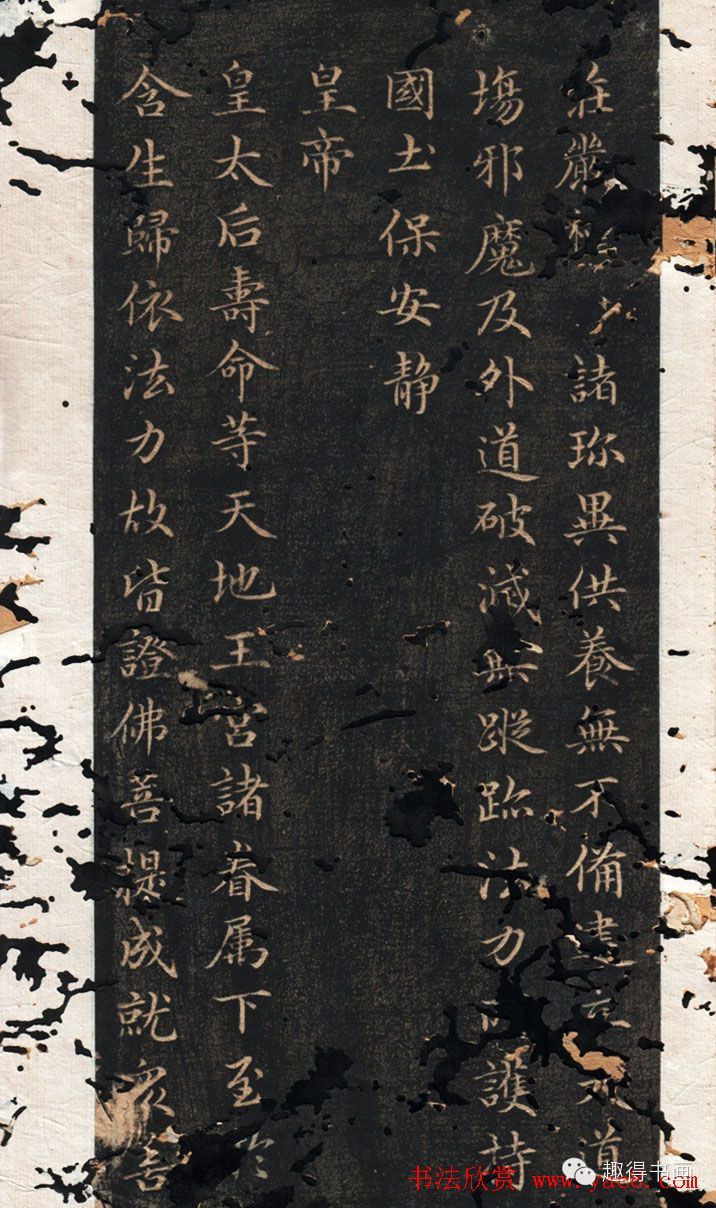 莊嚴諸珎異供養無不備建立道
塲邪魔及外道破滅無蹤跡法力護持
國土保安静
皇帝
皇太后壽命等天地王宮諸眷属下至
含生歸依法力故皆證佛菩提成就衆善
书法欣赏 www.yac8.com
趣得书画